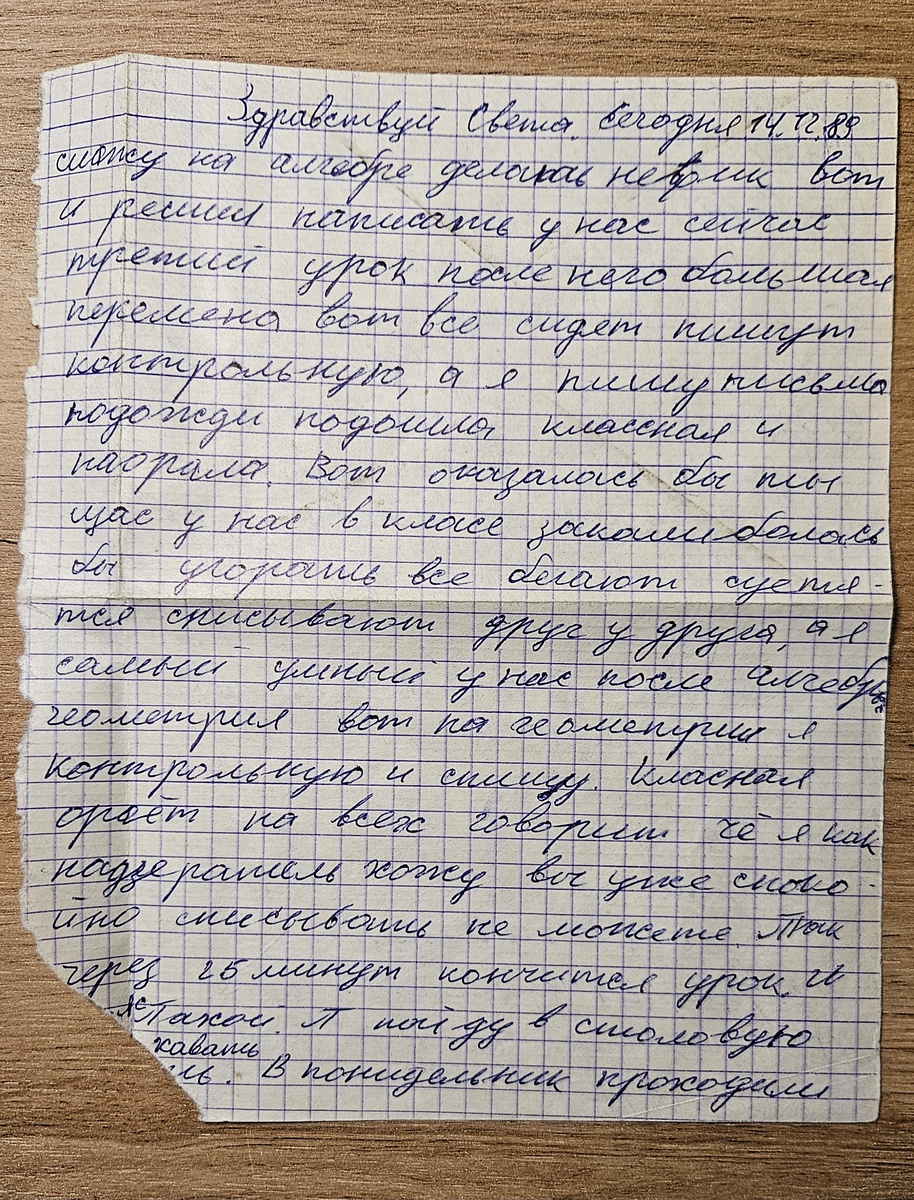 Здравствуй Света. Сегодня 14.12.89
сижу на алгебре делать невтик вот
и решил написать у нас сейчас
третий урок после него большая
перемена вот все сидят пишут
контрольную, а я пишу письмо
подожди подошла классная и
наорала. Вот оказалась бы ты
щас у нас в класе заколебалась
бы угорать все бегают суетя-
тся списывают друг у друга, а я
самый умный у нас после алгебры
геометрия вот на геометрии я
контрольную и спишу. Класная
орёт на всех говорит чё я как
надзератель хожу вы уже споко-
йно списывать не можете. Так
через 15 минут кончится урок. И
Пахой. Я пойду в столовую
кавать
. В понидельник проходили